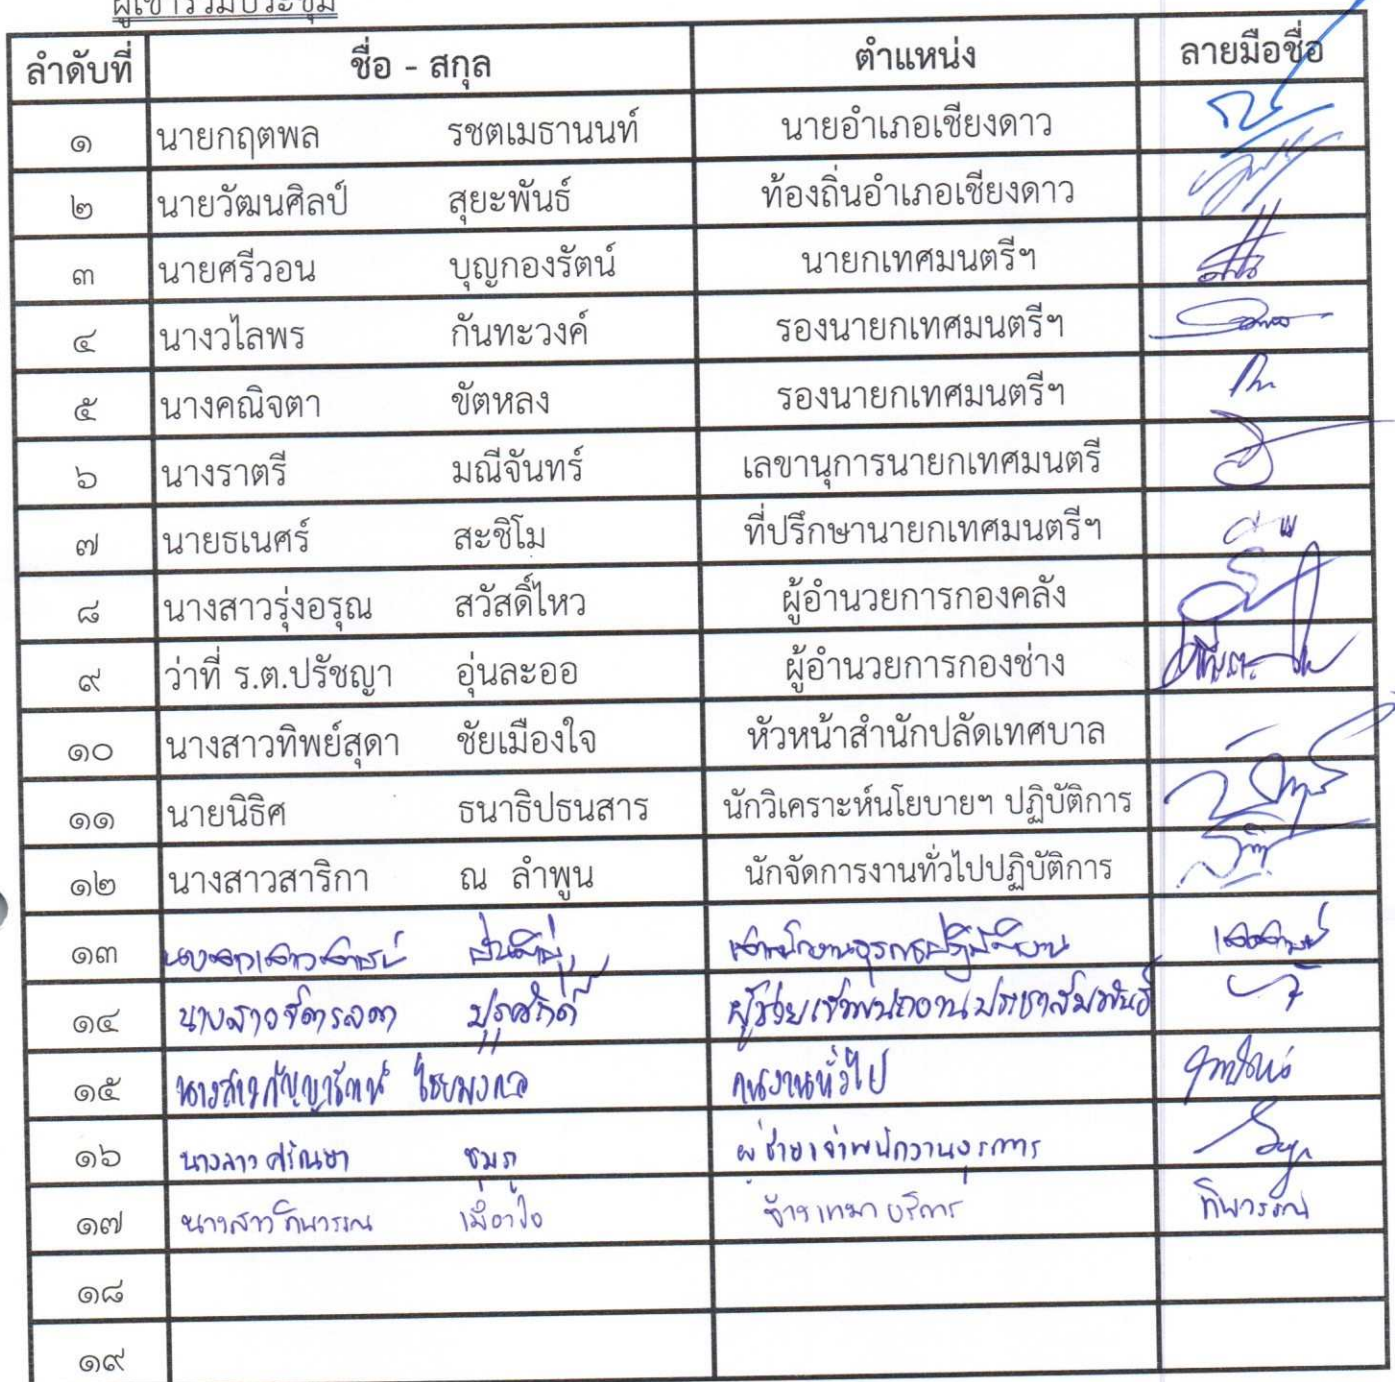 ผู้เข้าร่วมประชุม
ลำดับที่ ชื่อ - สกุล ตำแหน่ง ลายมือชื่อ
๑ นายกฤตพล รชตเมธานนท์ นายอำเภอเชียงดาว
๒ นายวัฒนศิลป์ สุยะพันธ์ ท้องถิ่นอำเภอเชียงดาว
๓ นายศรีวอน บุญกองรัตน์ นายกเทศมนตรีฯ
๔ นางวไลพร กันทะวงค์ รองนายกเทศมนตรีฯ
๕ นางคณิจตา ขัตหลง รองนายกเทศมนตรีฯ
๖ นางราตรี มณีจันทร์ เลขานุการนายกเทศมนตรี
๗ นายธเนศร์ สะชิโม ที่ปรึกษานายกเทศมนตรีฯ
๘ นางสาวรุ่งอรุณ สวัสดิ์ไหว ผู้อำนวยการกองคลัง
๙ ว่าที่ ร.ต.ปรัชญา อุ่นละออ ผู้อำนวยการกองช่าง
๑๐ นางสาวทิพย์สุดา ชัยเมืองใจ หัวหน้าสำนักปลัดเทศบาล
๑๑ นายนิธิศ ธนาธิปธนสาร นักวิเคราะห์นโยบายฯ ปฏิบัติการ
๑๒ นางสาวสาริกา ณ ลำพูน นักจัดการงานทั่วไปปฏิบัติการ
๑๓ เจ้าพนักงานธุรการปฏิบัติงาน
๑๔ นางสาวจิตรลดา ผู้ช่วยเจ้าพนักงานประชาสัมพันธ์
๑๕ นางสาวกัญญารัตน์ ไชยมงคล คนงานทั่วไป
๑๖ นางสาว ชมภู ผู้ช่วยเจ้าพนักงานธุรการ
๑๗ นางสาวทินวรรณ จ้างเหมาบริการ ทินวรรณ
๑๘
๑๙